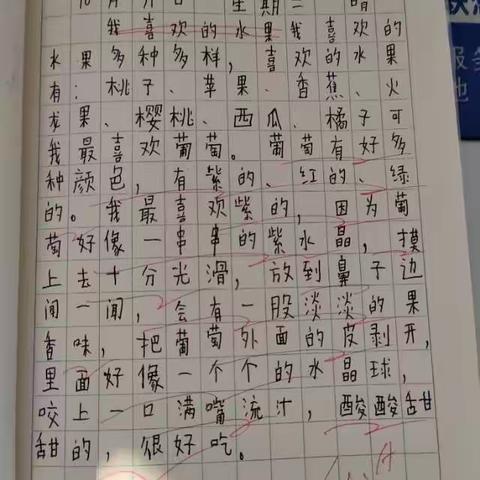 星期二 晴
我喜欢的水果我喜欢的
水果多种多样，喜欢的水果
有：桃子、苹果、香蕉、火
龙果、樱桃、西瓜、橘子可
我最喜欢葡萄。葡萄有好多
种颜色，有紫的、红的、绿
的。我最喜欢紫的，因为葡
萄好像一串串的紫水晶，摸
上去十分光滑，放到鼻子边
闻一闻，会有一股淡淡的果
香味，把葡萄外面的皮剥开，
里面好像一个个的水晶球，
咬上一口满嘴流汁，酸酸甜
甜的，很好吃。